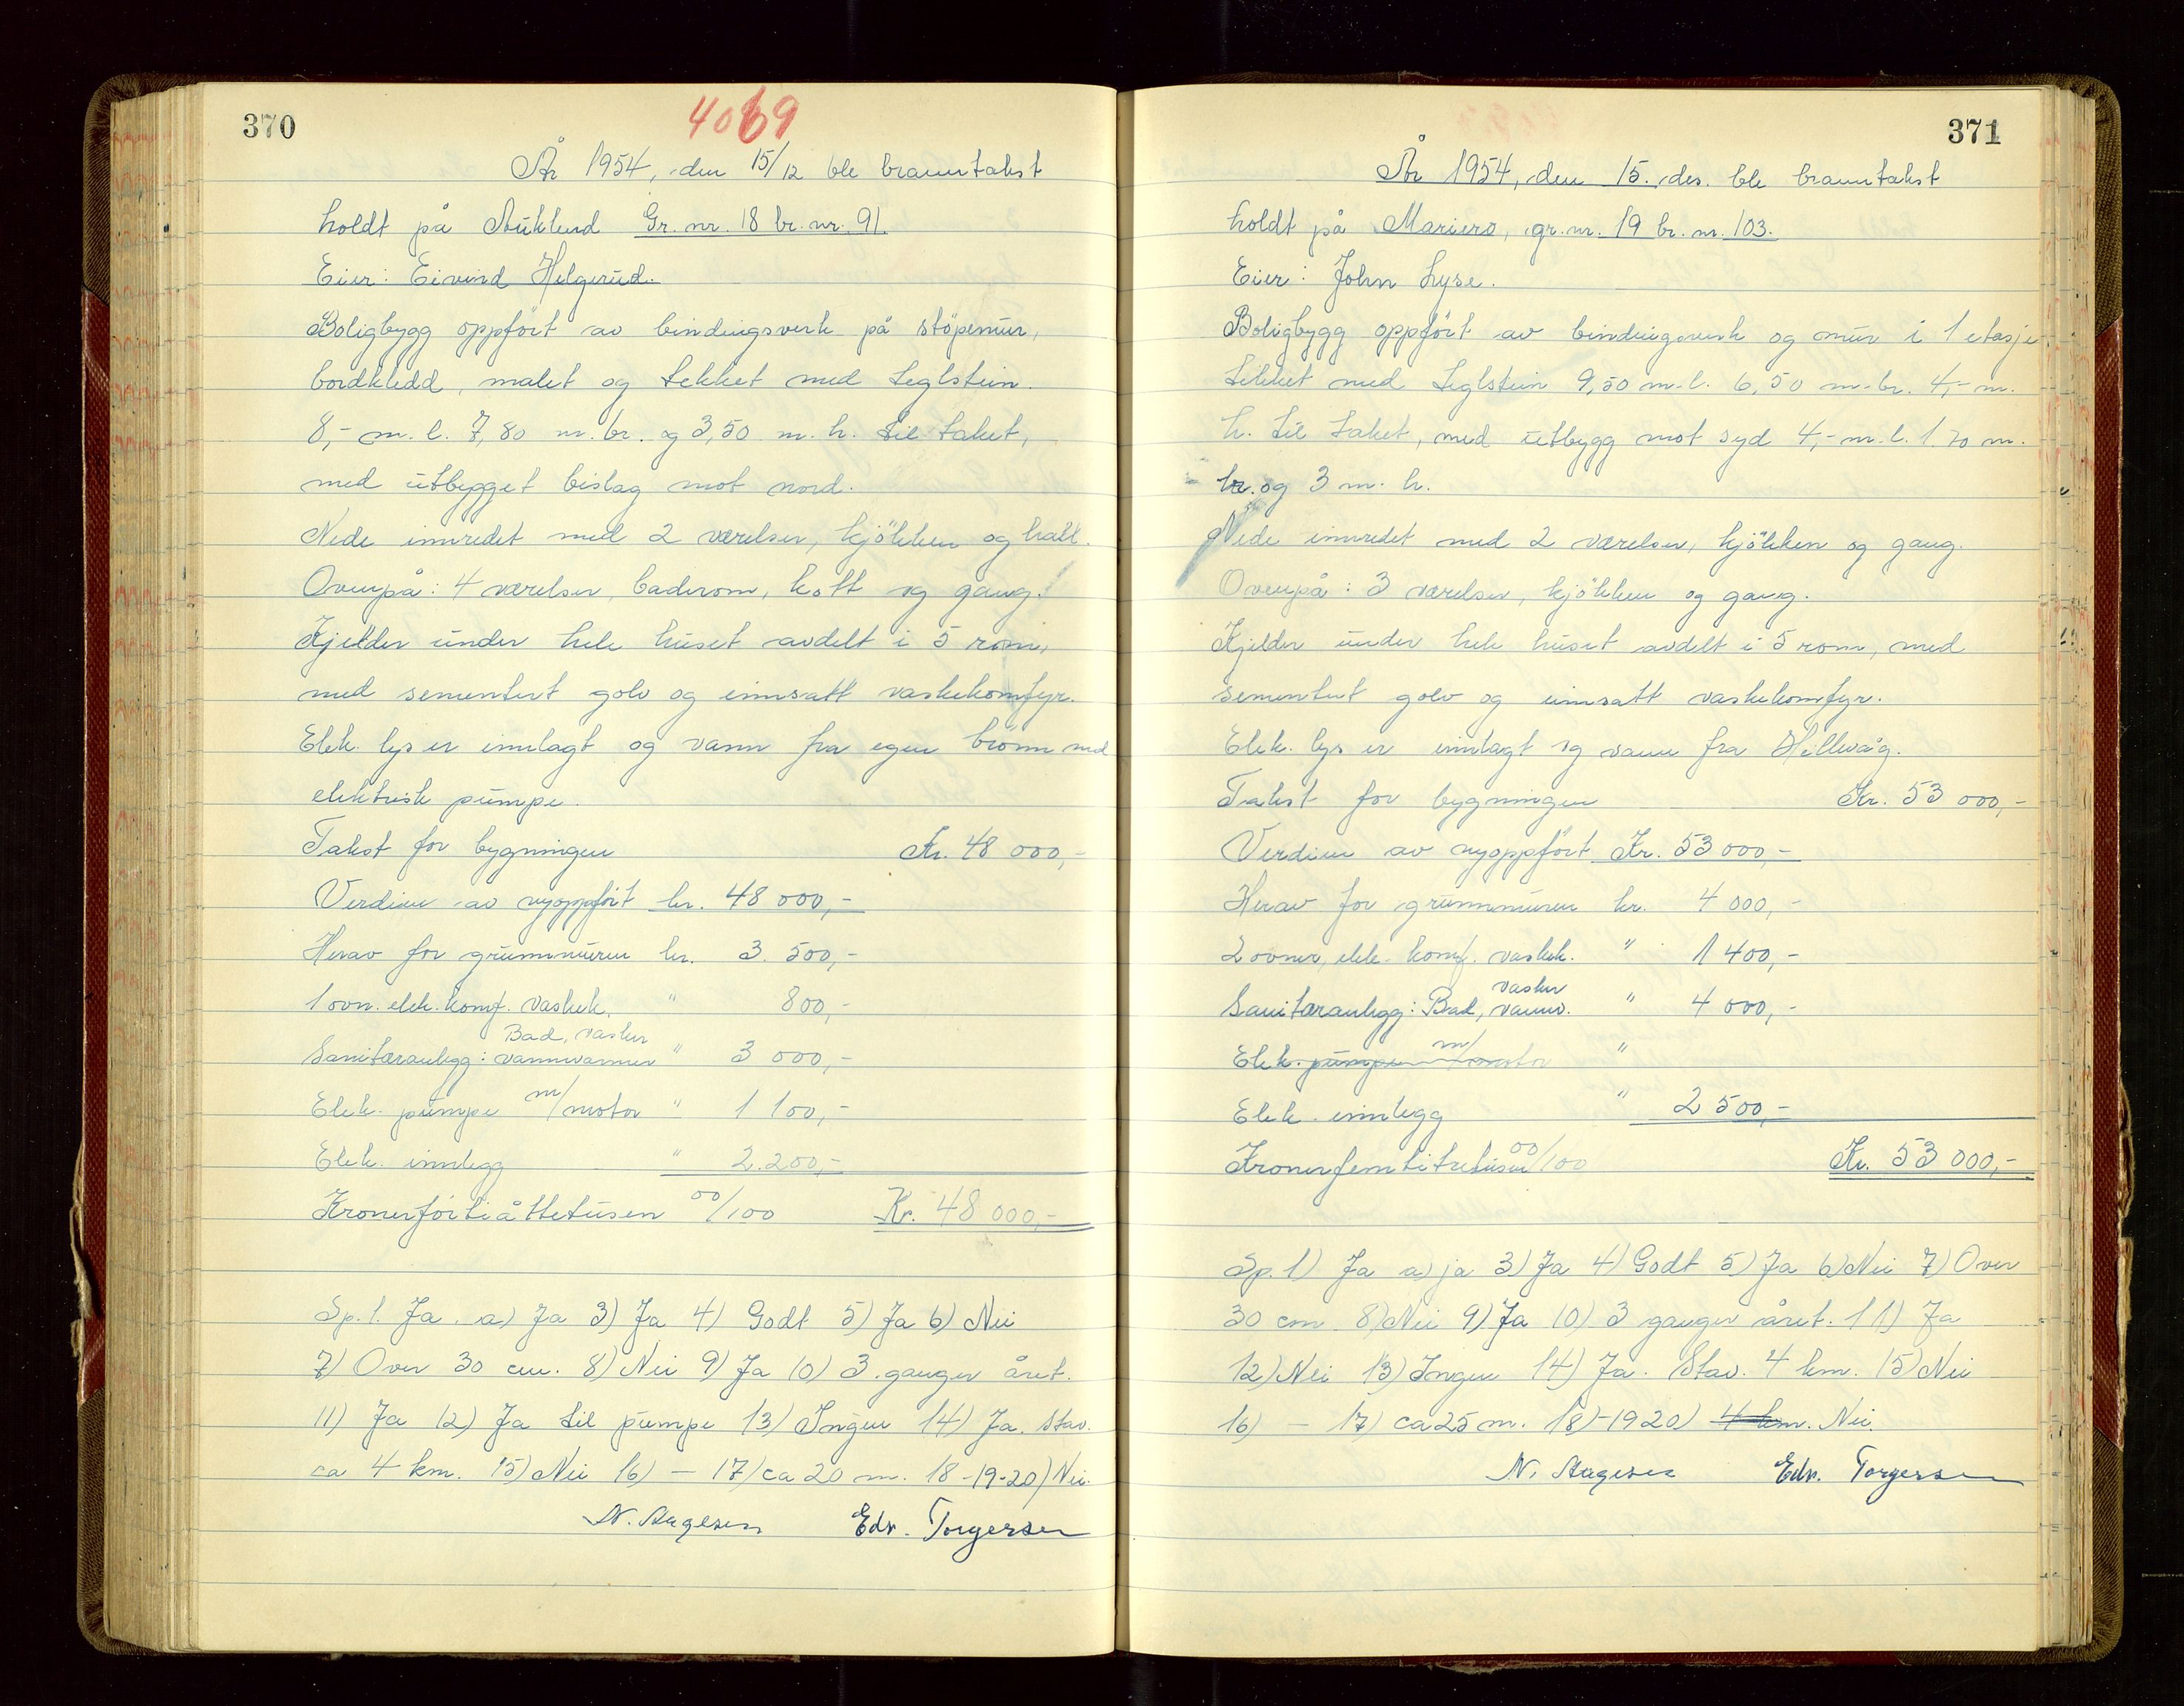 370
4069
År 1954, den 15/12 ble branntakst
holdt på Auklend Gr. nr. 18 br. nr. 91.
Eier: Eivind Helgerud.
Boligbygg oppført av bindingsverk på støpemur,
bordkledd, malet og tekket med teglstein.
8,- m. l. 7,80 m. br. og 3,50 m. h. til taket,
med utbygget bislag mot nord.
Nede innredet med 2 værelser, kjökken og hall.
Ovenpå: 4 værelser, baderom, kott og gang.
Kjelder under hele huset avdelt i 5 rom,
med sementert golv og innsatt vaskekomfyr.
Elek. lys er innlagt og vann fra egen brönn med
elektrisk pumpe.
Takst for bygningen Kr. 48 000,-
Verdien av nyoppført kr. 48 000,-
Herav for grunnmuren kr. 3. 500,-
1 ovn. elek. komf. vaskek. " 800,-
Bad, vasker
Sanitæranlegg: vannvarmer " 3 000,-
Elek. pumpe m/motor " 1 100,-
Elek. innlegg " 2.200,-
Kronerførtiåttetusen 00/100 Kr. 48 000,-
Sp. 1. Ja. a) Ja 3) Ja 4) Godt 5) Ja 6) Nei
7) Over 30 cm. 8) Nei 9) Ja 10) 3 ganger året.
11) Ja 12) Ja til pumpe 13) Ingen 14) Ja. Stav.
ca 4 km. 15) Nei 16) - 17) ca 20 m. 18-19-20) Nei.
N. Aagesen Edv. Torgersen
371
År 1954, den 15. des. ble branntakst
holdt på Mariero, gr. nr. 19 br. nr. 103.
Eier: John Lyse.
Boligbygg oppført av bindingsverk og mur i 1 etasje
tekket med teglstein 9,50 m. l. 6,50 m. br. 4,- m.
h. til taket, med utbygg mot syd 4,- m. l. 1.70 m.
br. og 3 m. h.
Nede innredet med 2 værelser, kjökken og gang.
Ovenpå: 3 værelser, kjökken og gang.
Kjelder under hele huset avdelt i 5 rom, med
sementert golv og innsatt vaskekomfyr.
Elek. lys er innlagt og vann fra Hillevåg.
Takst for bygningen Kr. 53 000,-
Verdien av nyoppført Kr. 53 000,-
Herav for grunnmuren kr. 4 000,-
2 ovner, elek. komf. vaskek. " 1 400,-
vasker
Sanitæranlegg: Bad, vannv. " 4 000,-
Elek. pumpe m/motor "
Elek. innlegg " 2 500,-
Kronerfemtitretusen 00/100 Kr. 53 000,-
Sp. 1) Ja a) ja 3) Ja 4) Godt 5) Ja 6) Nei 7) Over
30 cm 8) Nei 9) Ja 10) 3 ganger året. 11) Ja
12) Nei 13) Ingen 14) Ja. Stav. 4 km. 15) Nei
16) - 17) ca 25 m. 18)-19 20) 4 km. Nei.
N. Aagesen Edv. Torgersen